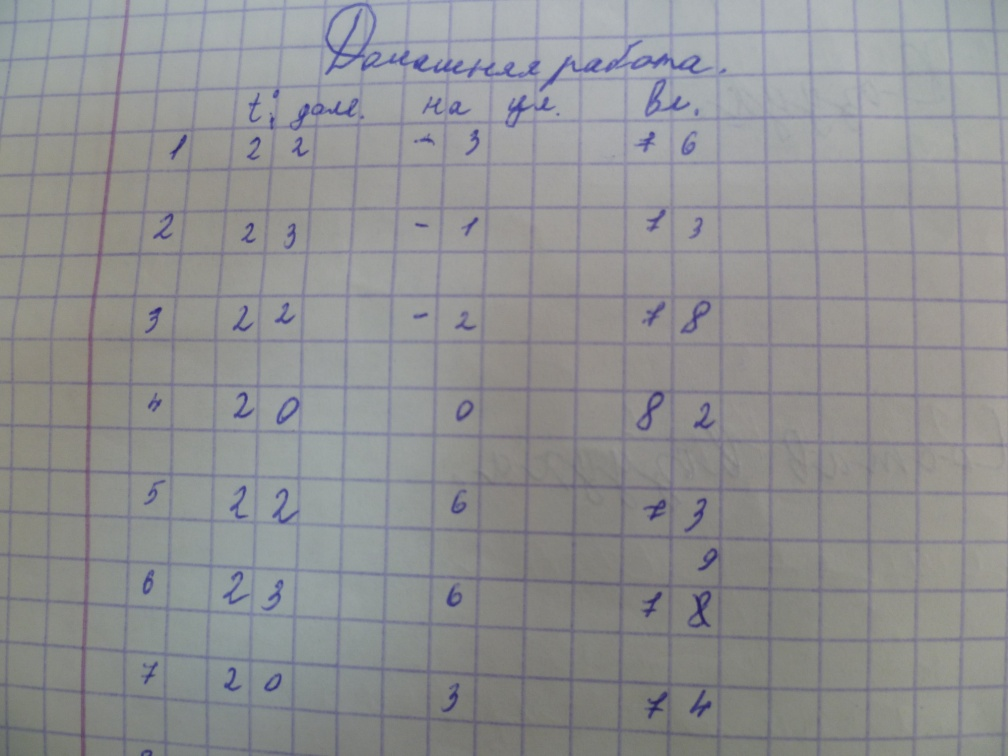 Домашняя работа.
t: дом. на ул. вл.
1 22 -3 76
2 23 -1 73
3 22 -2 78
4 20 0 82
5 22 6 73
9
6 23 6 78
7 20 3 74